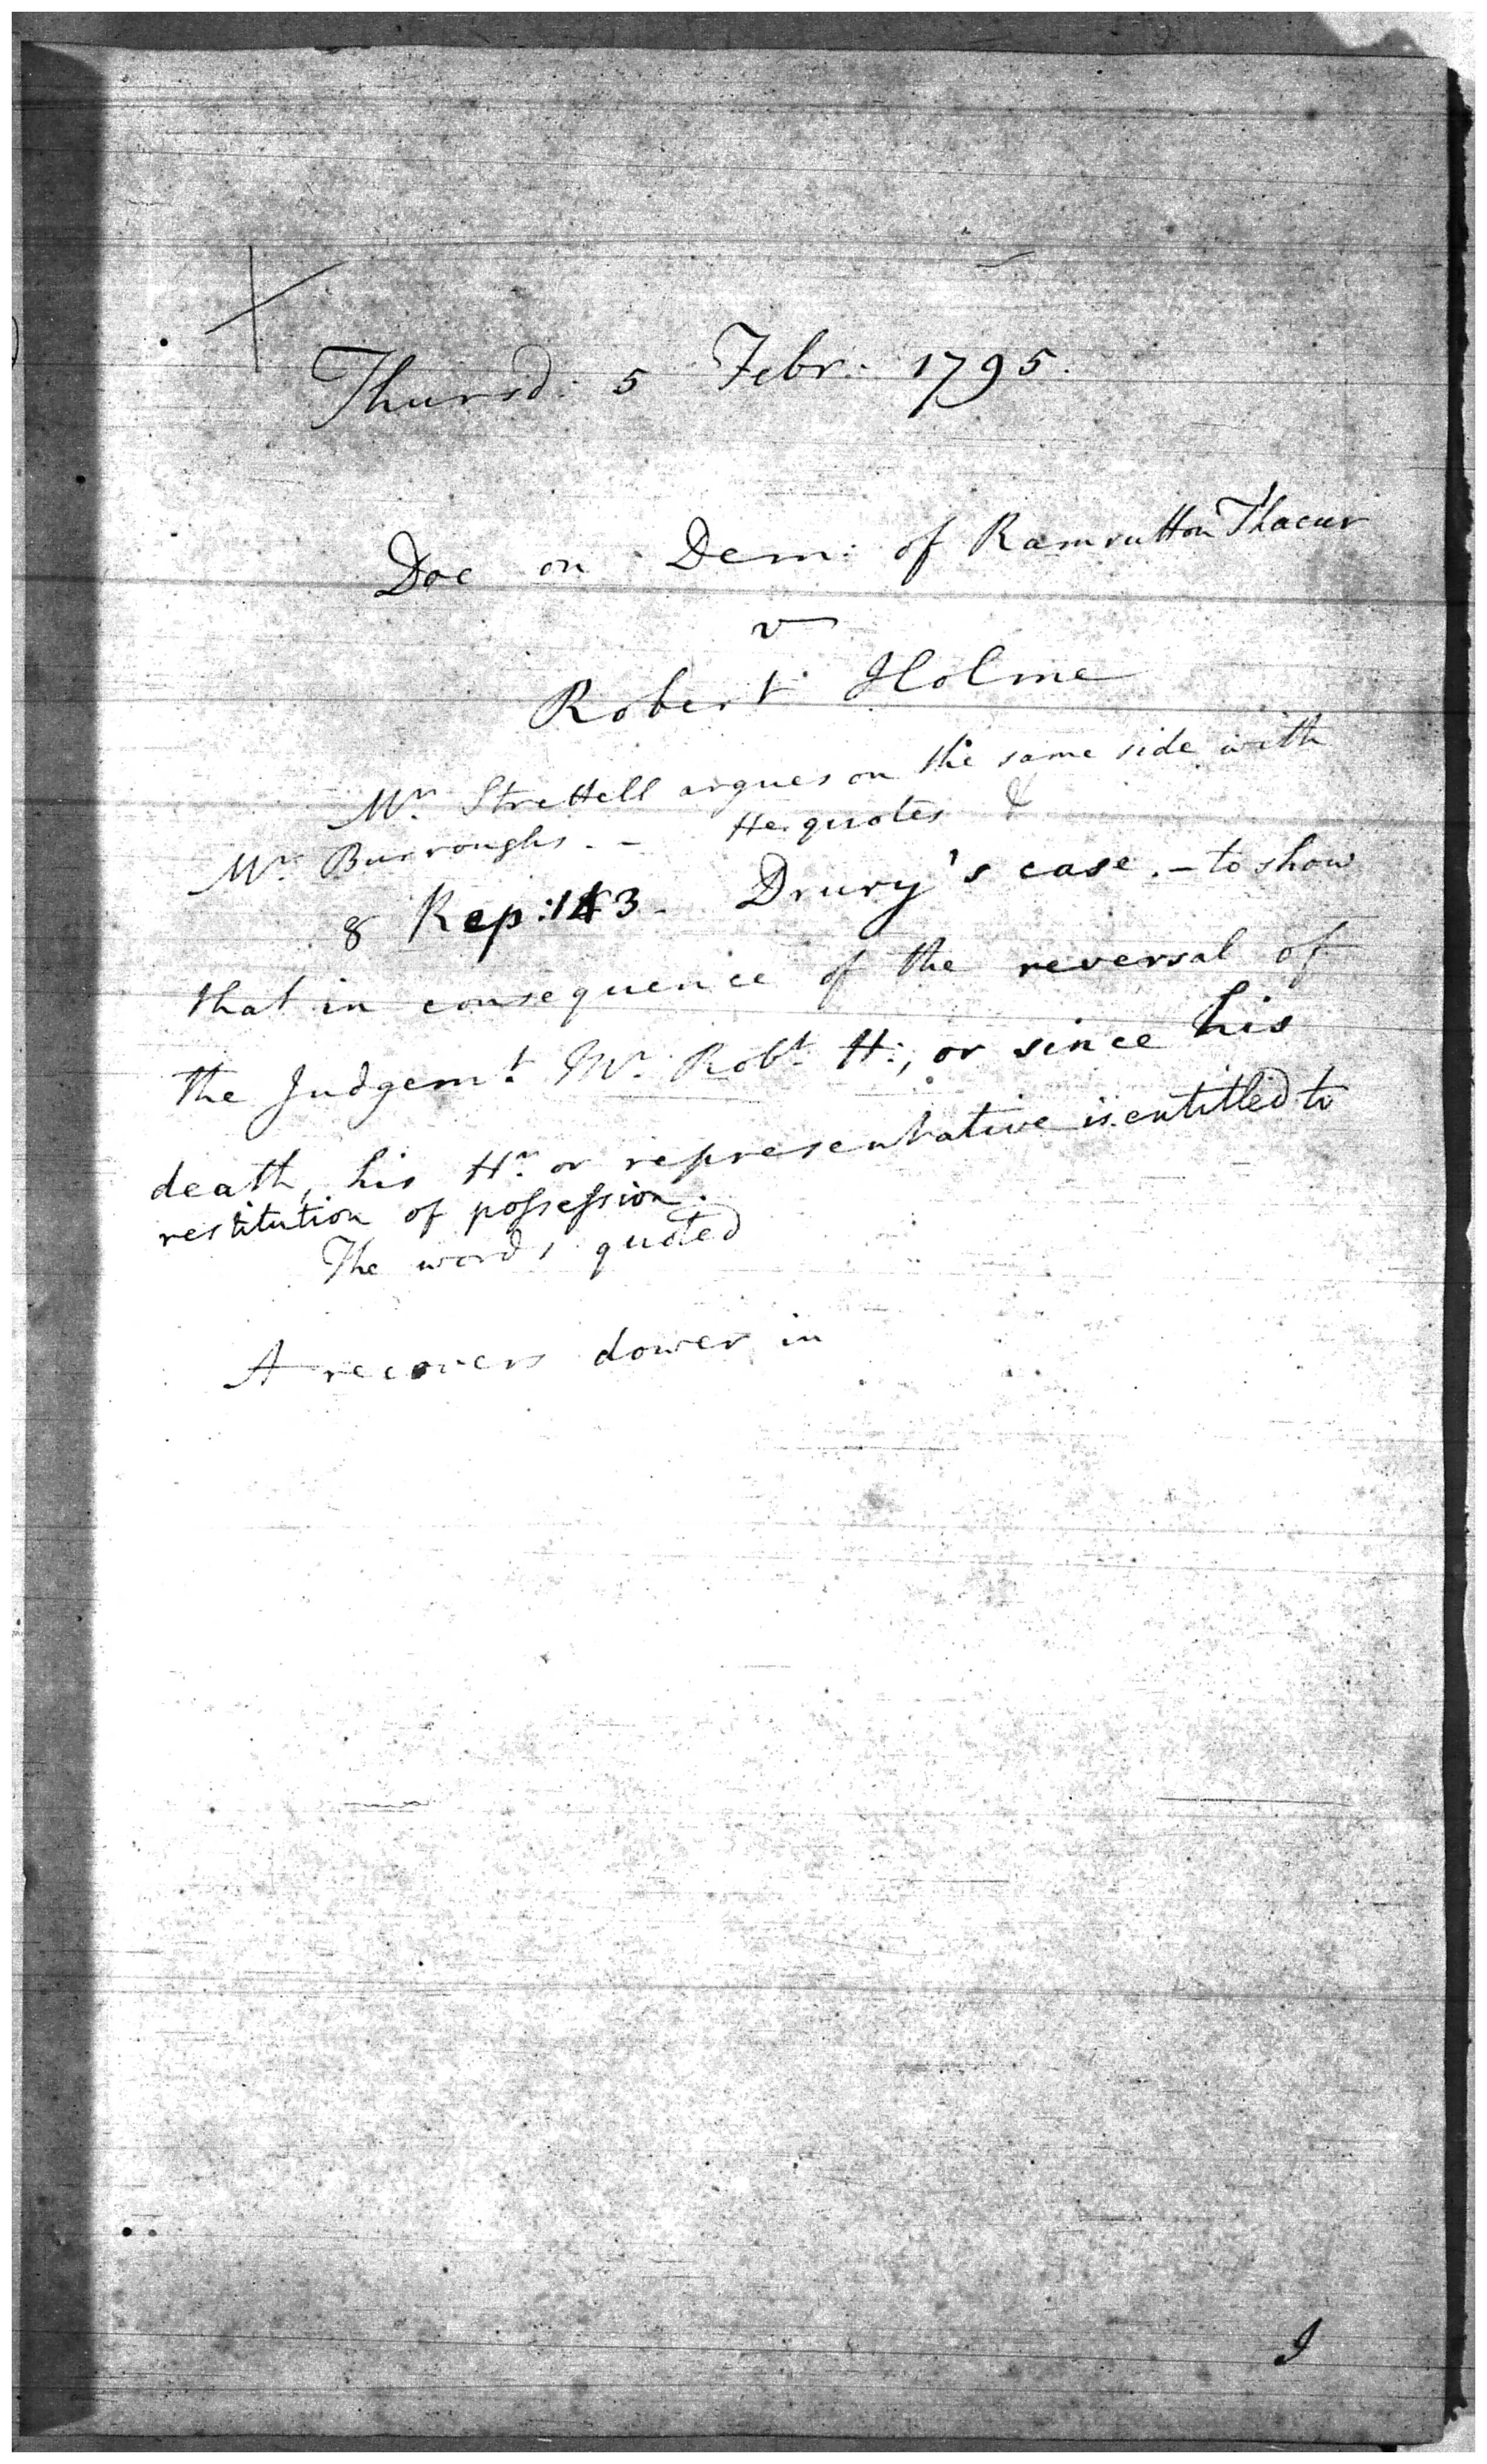 Thursd: 5 Febr: 1795.
Doe on Dem: of Ramrutton Thacur
v
Robert Holme
Mr. Strettell argues on the same side with
Mr. Burroughs. - He quotes
8 Rep: 143 - Drury's case. - to show
that in consequence of the reversal of
the Judgemt. Mr. Robt. H:, or since his
death, his Hr. or representative is entitled to
restitution of possession.
The words quoted
A recovers dower in